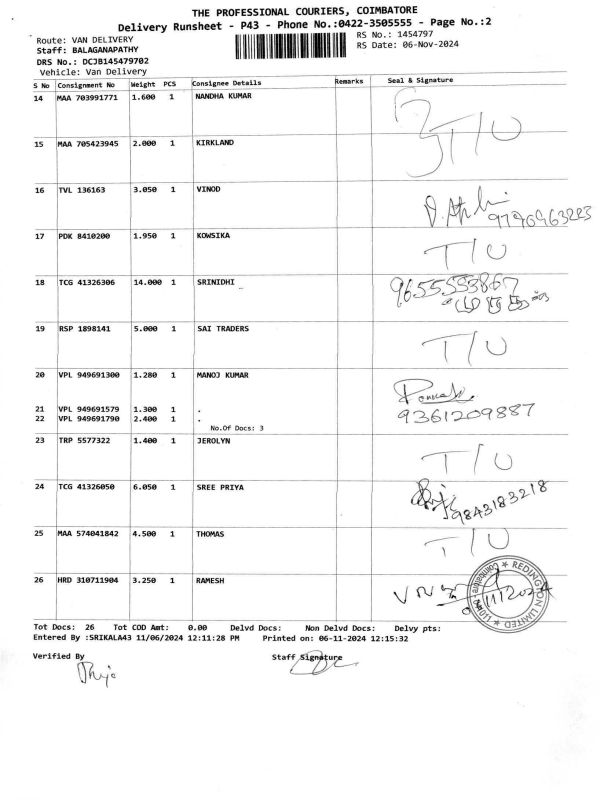 THE PROFESSIONAL COURIERS, COIMBATORE
Delivery Runsheet - P43 - Phone No.:0422-3505555 - Page No.:2
Route: VAN DELIVERY
RS No.: 1454797
Staff: BALAGANAPATHY
RS Date: 06-Nov-2024
DRS No.: DCJB145479702
Vehicle: Van Delivery
S No Consignment No Weight PCS Consignee Details Remarks Seal & Signature
14 MAA 703991771 1.600 1 NANDHA KUMAR T/U
15 MAA 705423945 2.000 1 KIRKLAND
16 TVL 136163 3.050 1 VINOD
17 PDK 8410200 1.950 1 KOWSIKA T/U
18 TCG 41326306 14.000 1 SRINIDHI 9655593867
19 RSP 1898141 5.000 1 SAI TRADERS T/U
20 VPL 949691300 1.280 1 MANOJ KUMAR
21 VPL 949691579 1.300 1 . 9361209887
22 VPL 949691790 2.400 1 .
No.Of Docs: 3
23 TRP 5577322 1.400 1 JEROLYN T/U
24 TCG 41326050 6.050 1 SREE PRIYA 9843183218
25 MAA 574041842 4.500 1 THOMAS T/U
26 HRD 310711904 3.250 1 RAMESH
REDINGTON LIMITED Coimbatore
Tot Docs: 26 Tot COD Amt: 0.00 Delvd Docs: Non Delvd Docs: Delvy pts:
Entered By :SRIKALA43 11/06/2024 12:11:28 PM Printed on: 06-11-2024 12:15:32
Verified By Staff Signature